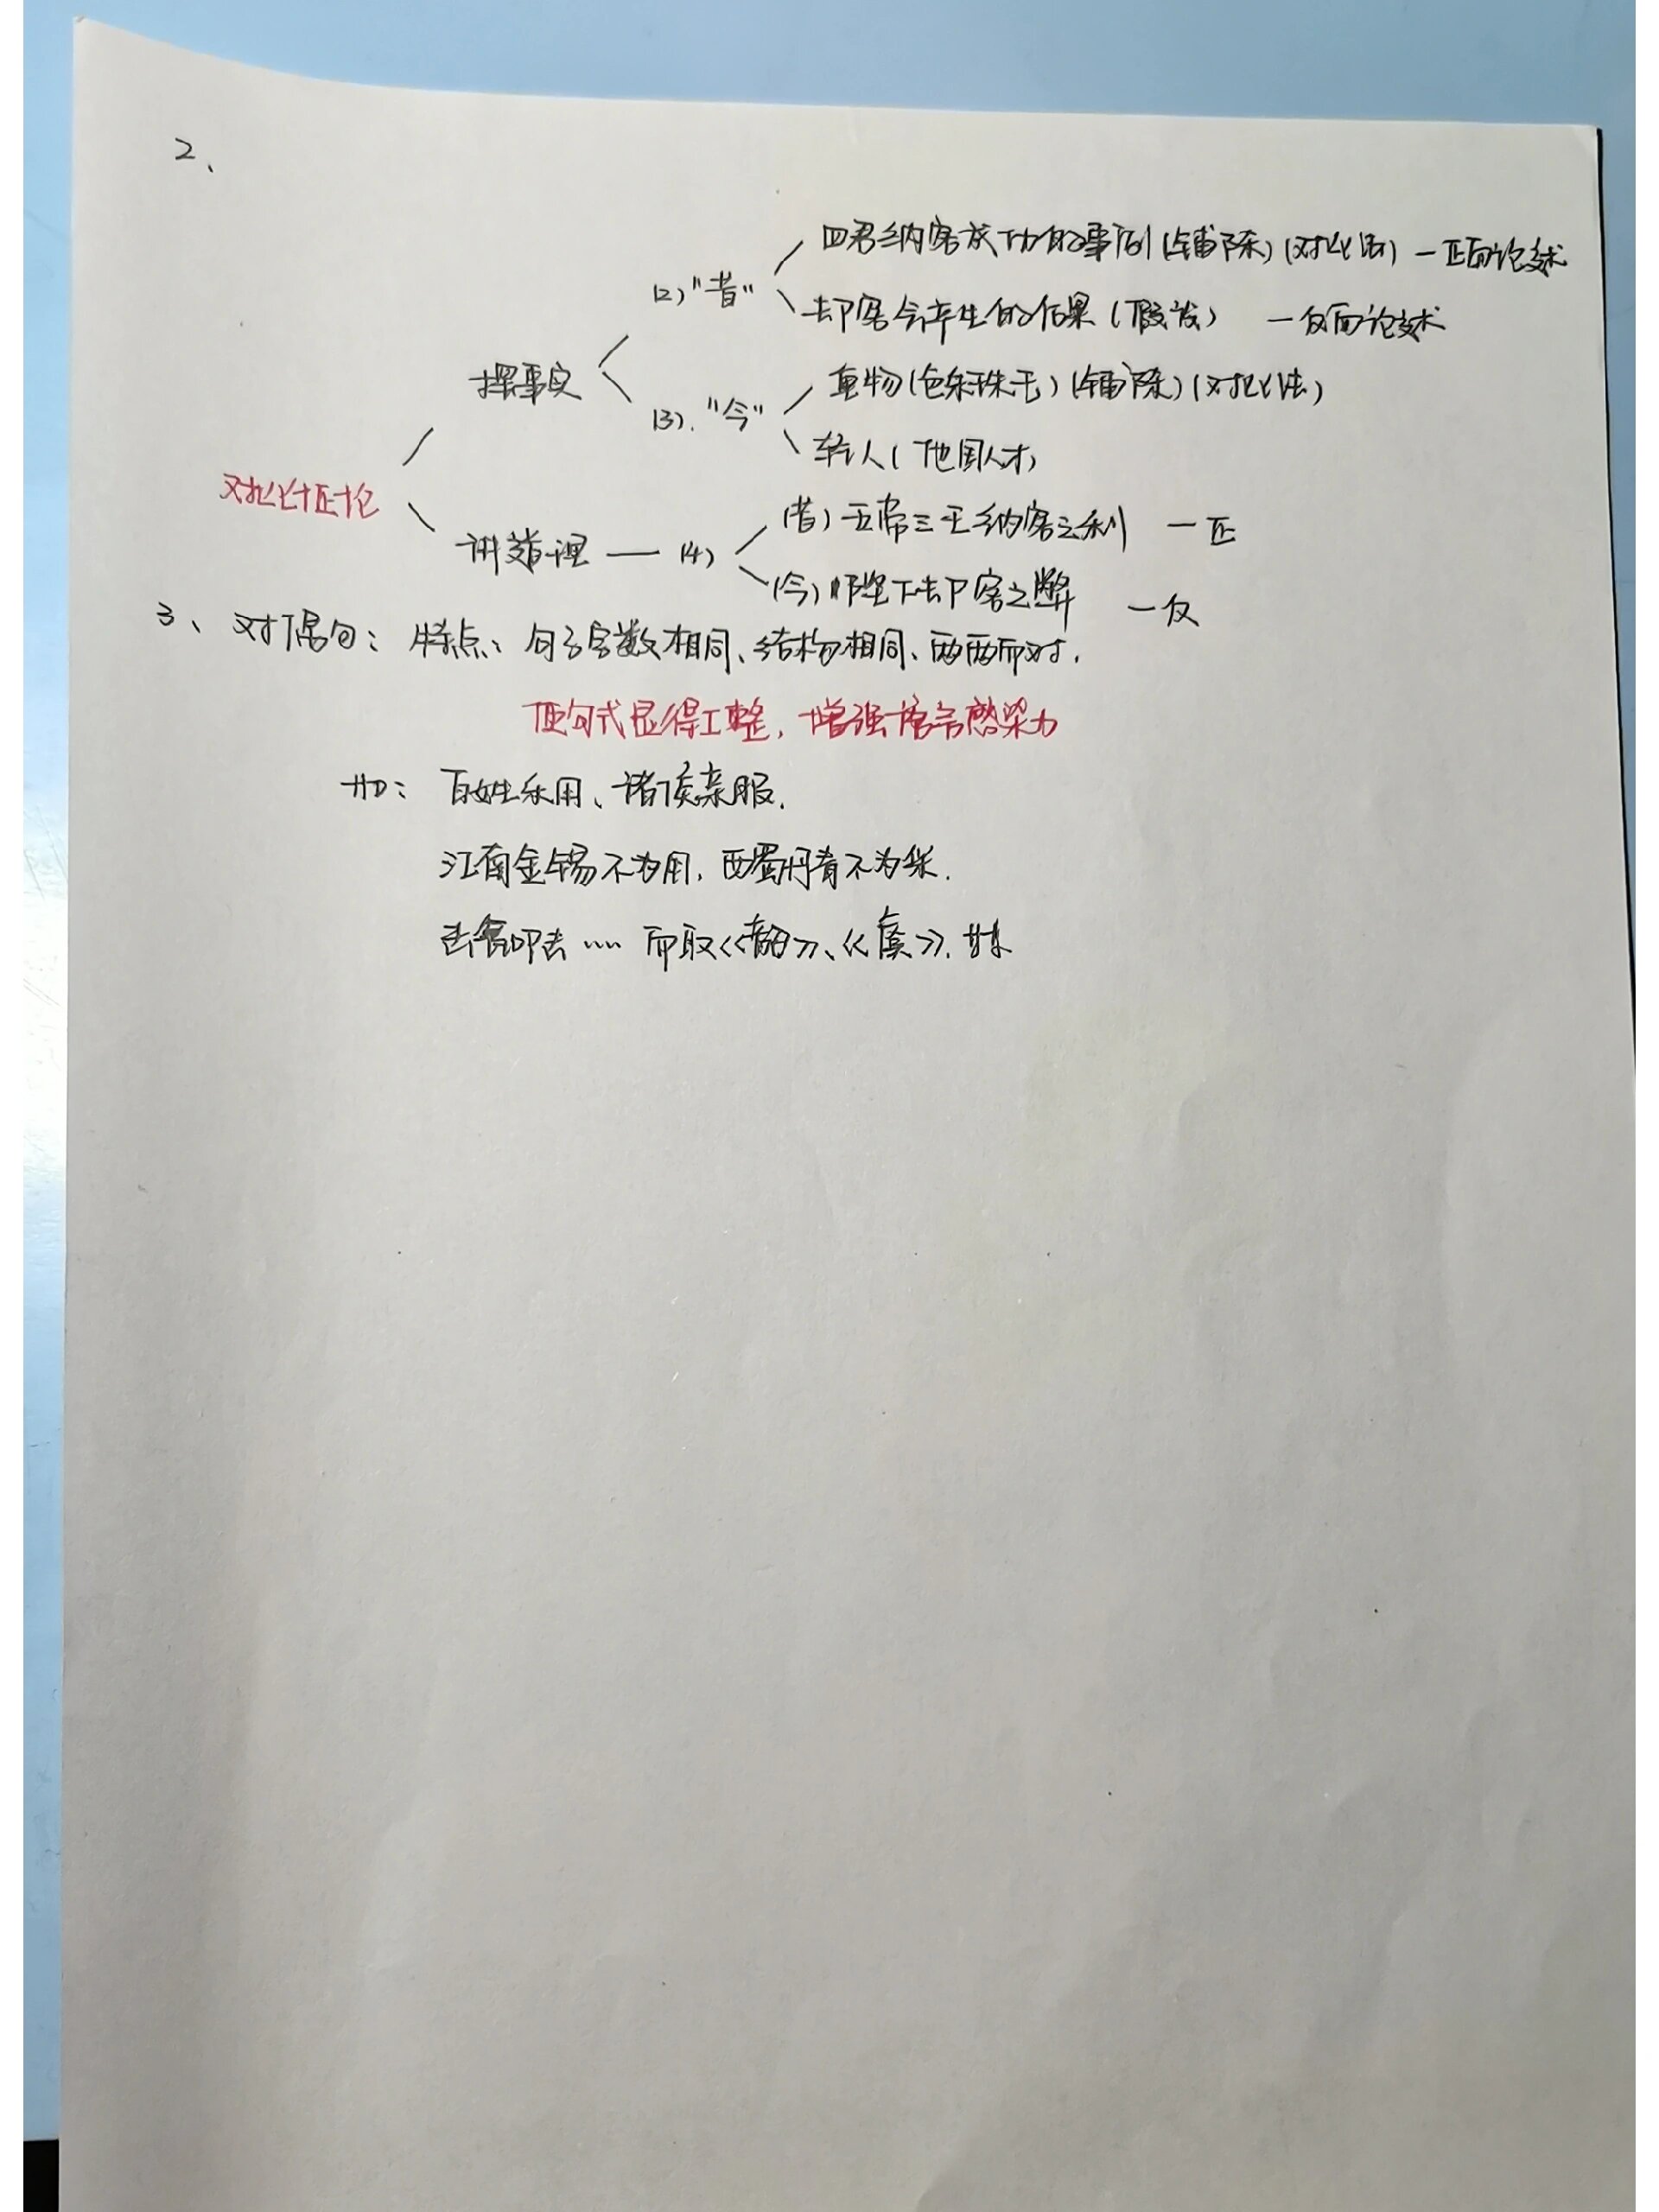 2、
四君纳客成功的事例(铺陈)(对比法) — 正面论述
(2)"昔"
却客会产生的后果(假设) — 反面论述
摆事实
重物(色乐珠玉)(铺陈)(对比法)
(3)."今"
轻人(他国人才)
对比论证
(昔)五帝三王纳客之利 — 正
讲道理 — (4)
(今)陛下却客之弊 — 反
3、对偶句：特点：句子字数相同、结构相同、两两而对.
使句式显得工整，增强语言感染力
如：百姓乐用、诸侯亲服.
江南金锡不为用，西蜀丹青不为采.
击瓮叩缶……而取《韶》、《虞》.